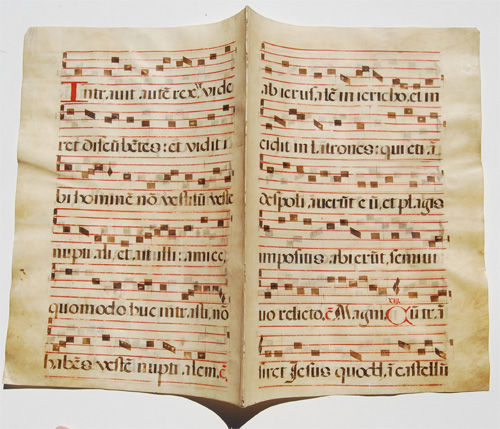 Intravit autē rex, ut vide
ret discūbētes: et vidit i
bi hominē nō vestitū veste
nuptiali, et ait illi: amice,
quomodo huc intrasti, nō
habēs vestē nuptialem, ē
ab ierusalē in iericho, et in
cidit in latrones: qui etiā
despoliaverūt eū, et plagis
impositis abierūt, semivi
vo relicto, ē. Magni. Cū trā
siret Jesus quodā castellū